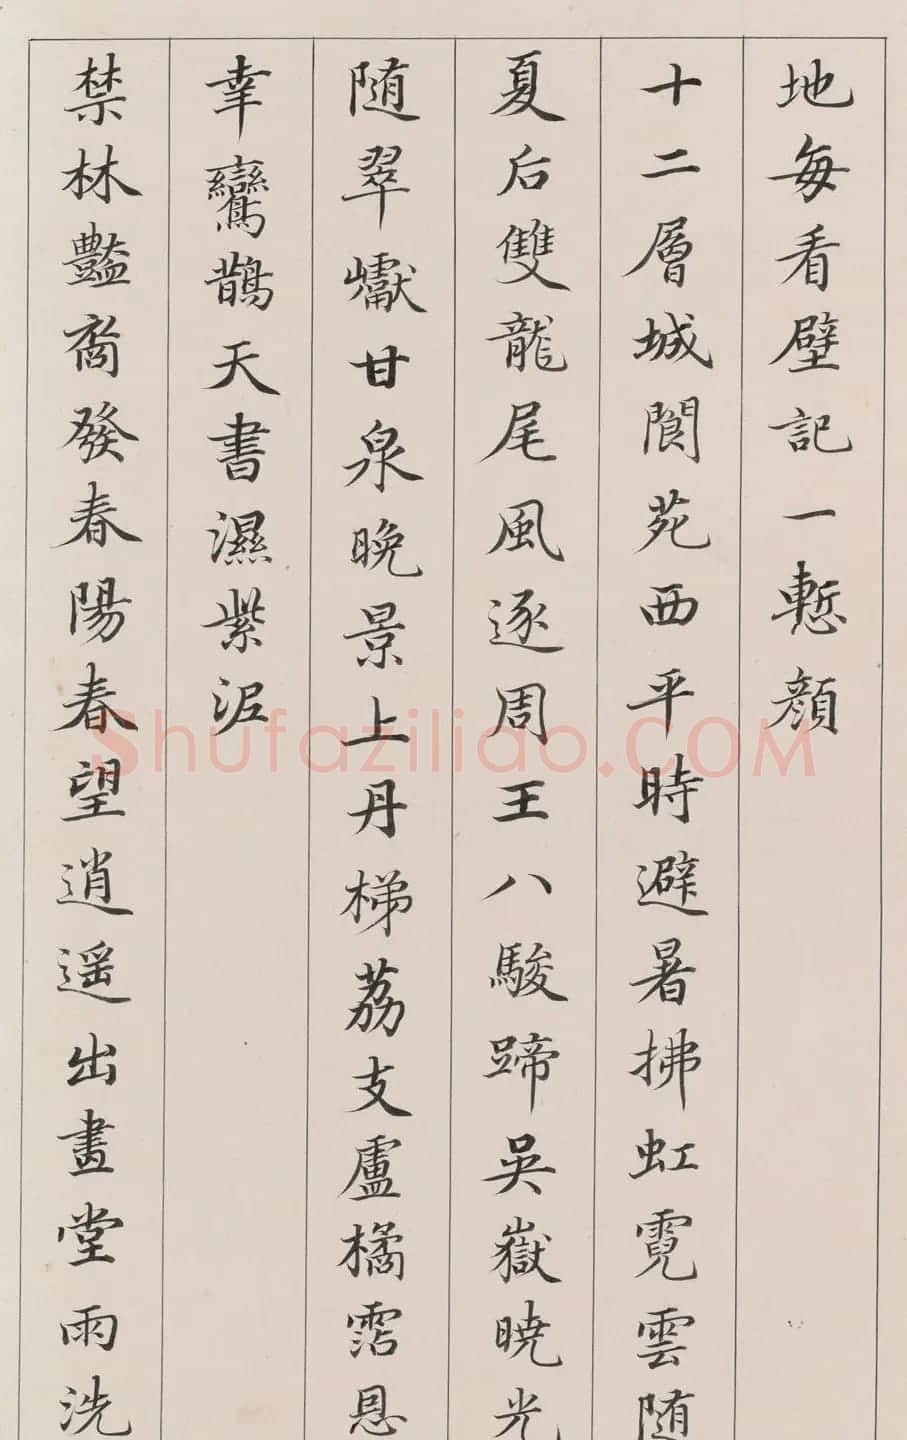 地每看壁記一慙顔
十二層城閬苑西平時避暑拂虹霓雲随
夏后雙龍尾風逐周王八駿蹄吳嶽曉光
随翠巘甘泉晚景上丹梯荔支盧橘霑恩
幸鸞鵲天書濕紫泥
禁林艷裔發春陽春望逍遥出畫堂雨洗
Shufaziliao.COM